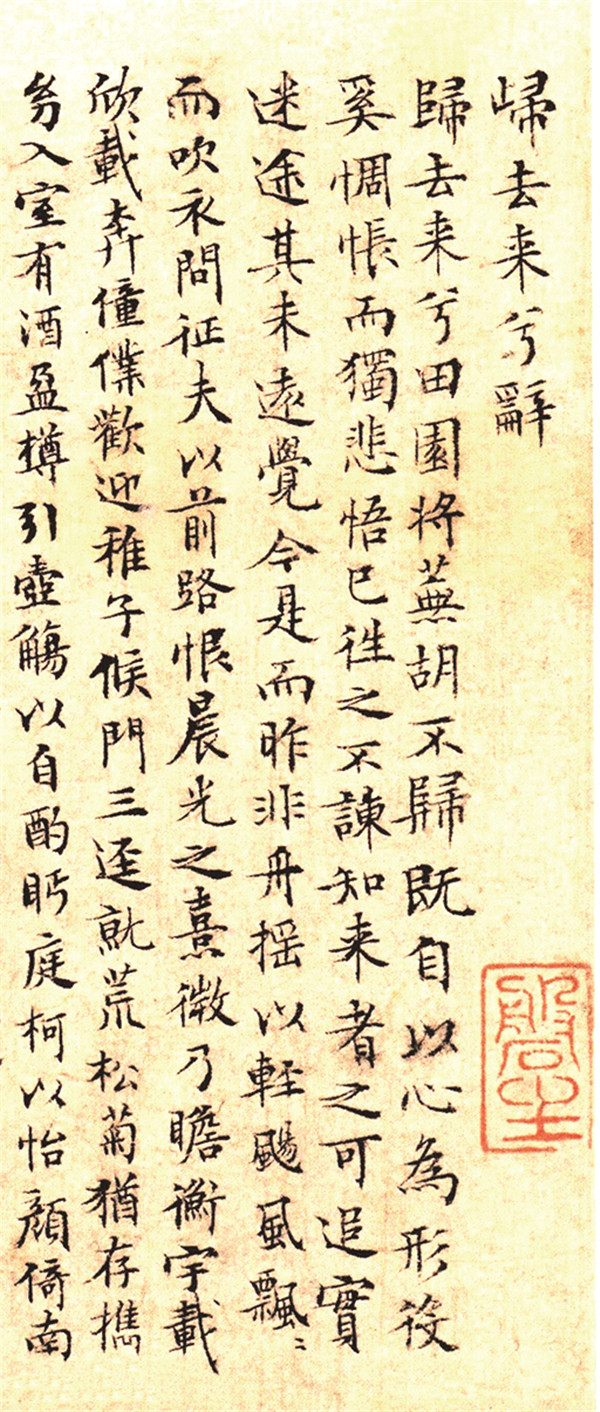 歸去来兮辭
歸去来兮田園将蕪胡不歸既自以心為形役
奚惆悵而獨悲悟已往之不諫知来者之可追實
迷途其未遠覺今是而昨非舟摇以輕颺風飄〻
而吹衣問征夫以前路恨晨光之熹微乃瞻衡宇載
欣載奔僮僕歡迎稚子候門三逕就荒松菊猶存擕
幼入室有酒盈樽引壺觴以自酌眄庭柯以怡顔倚南